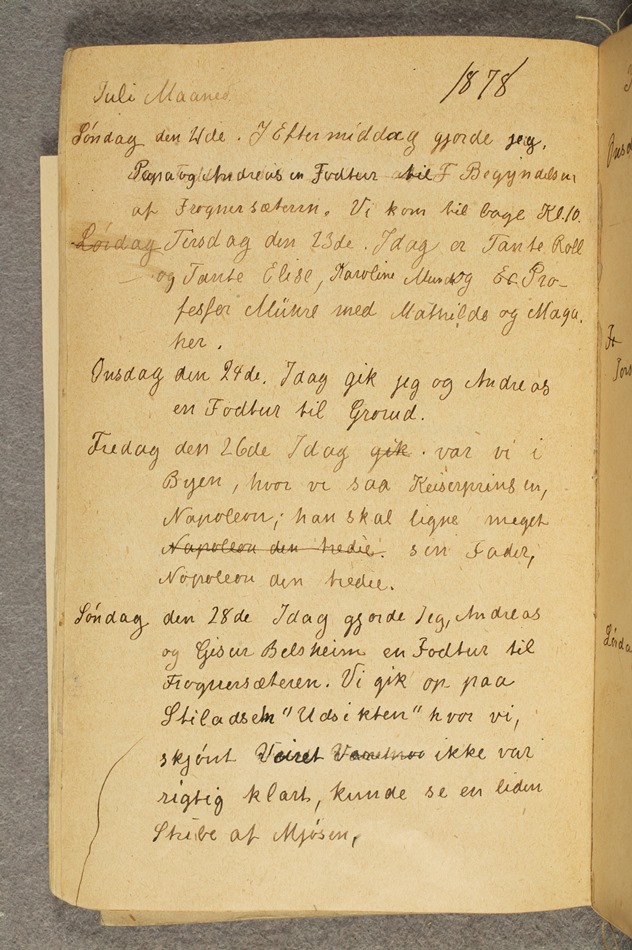 Juli Maaned. 1878
Søndag den 21de. I Eftermiddag gjorde jeg,
Papa og Andreas en Fodtur til F Begyndelsen
af Frognersæteren. Vi kom til bage Kl. 10.
Lørdag Tirsdag den 23de. Idag er Tante Roll
og Tante Elise, Karoline og Pro-
fessor med Mathilde og Maga.
her.
Onsdag den 24de. Idag gik jeg og Andreas
en Fodtur til Grorud.
Fredag den 26de Idag gik. var vi i
Byen, hvor vi saa Keiserprinsen,
Napoleon; han skal ligne meget
Napoleon den tredie. sin Fader,
Napoleon den tredie.
Søndag den 28de Idag gjorde Jeg, Andreas
og Gisur Belsheim en Fodtur til
Frognersæteren. Vi gik op paa
Stiladsen "Udsikten" hvor vi,
skjønt Veiret ikke var
rigtig klart, kunde se en liden
Stribe af Mjøsen,